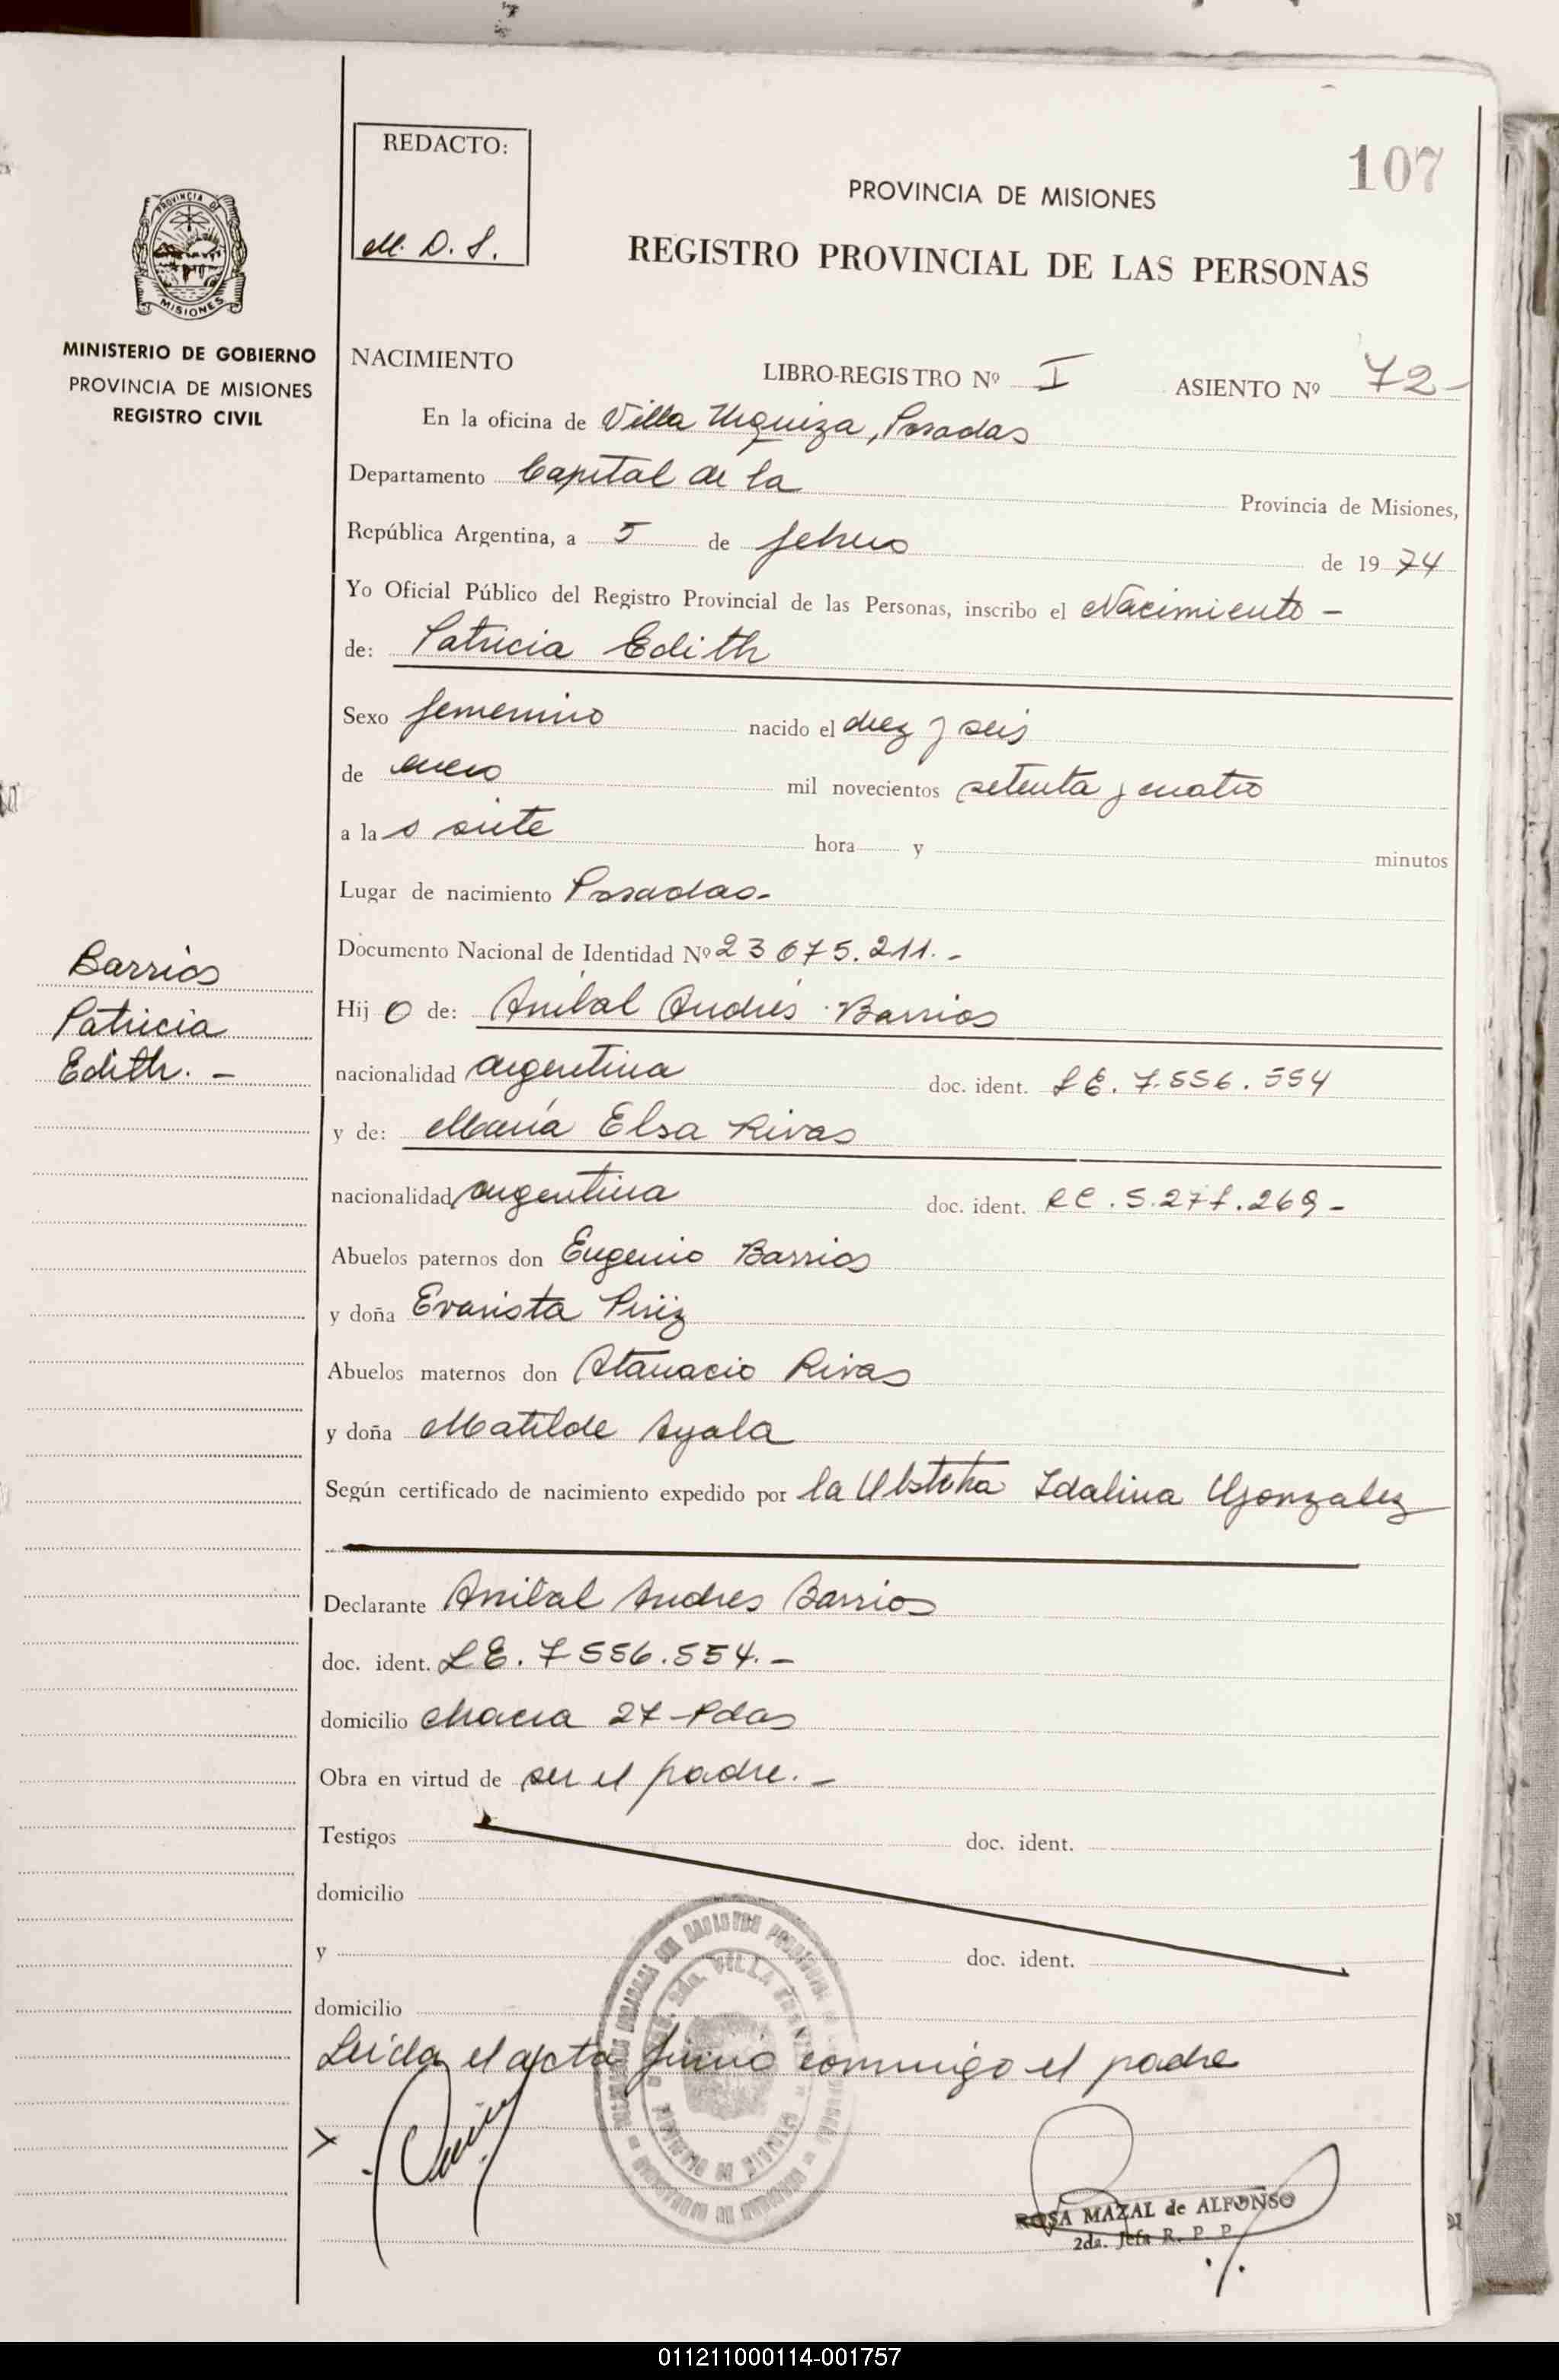 107
REDACTO:
M. D. S.
PROVINCIA DE MISIONES
REGISTRO PROVINCIAL DE LAS PERSONAS
PROVINCIA DE
MISIONES
MINISTERIO DE GOBIERNO
PROVINCIA DE MISIONES
REGISTRO CIVIL
NACIMIENTO LIBRO-REGISTRO Nº I ASIENTO Nº 72-
En la oficina de Villa Urquiza, Posadas
Departamento Capital de la Provincia de Misiones,
República Argentina, a 5 de febrero de 1974
Yo Oficial Público del Registro Provincial de las Personas, inscribo el Nacimiento -
de: Patricia Edith
Sexo femenino nacido el diez y seis
de enero mil novecientos setenta y cuatro
a las siete hora y minutos
Lugar de nacimiento Posadas-
Documento Nacional de Identidad Nº 23 075.211.-
Barrios
Patricia
Edith. -
Hijo de: Anibal Andrés Barrios
nacionalidad argentina doc. ident. LE. 7.556.554
y de: María Elsa Rivas
nacionalidad argentina doc. ident.
Abuelos paternos don Eugenio Barrios
y doña Evarista
Abuelos maternos don Atanacio Rivas
y doña Matilde Ayala
Según certificado de nacimiento expedido por la Obstetra Idalina Gonzalez
Declarante Anibal Andres Barrios
doc. ident. LE. 7 556.554. -
domicilio chacra 27 - Pdas
Obra en virtud de ser el padre. -
Testigos doc. ident.
domicilio
y doc. ident.
domicilio
Leída el acta firma conmigo el padre
ROSA MAZAL de ALFONSO
2da. Jefa R. P. P.
011211000114-001757